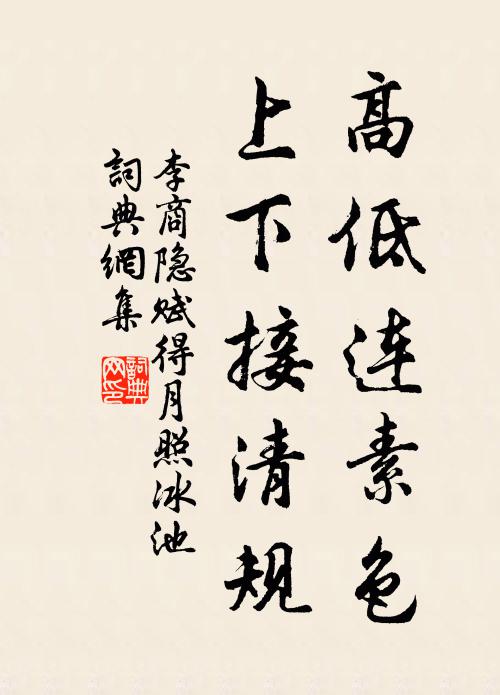 高低连素色
上下接清规
李商隐赋得月照冰池
詞典網集
詞典网印